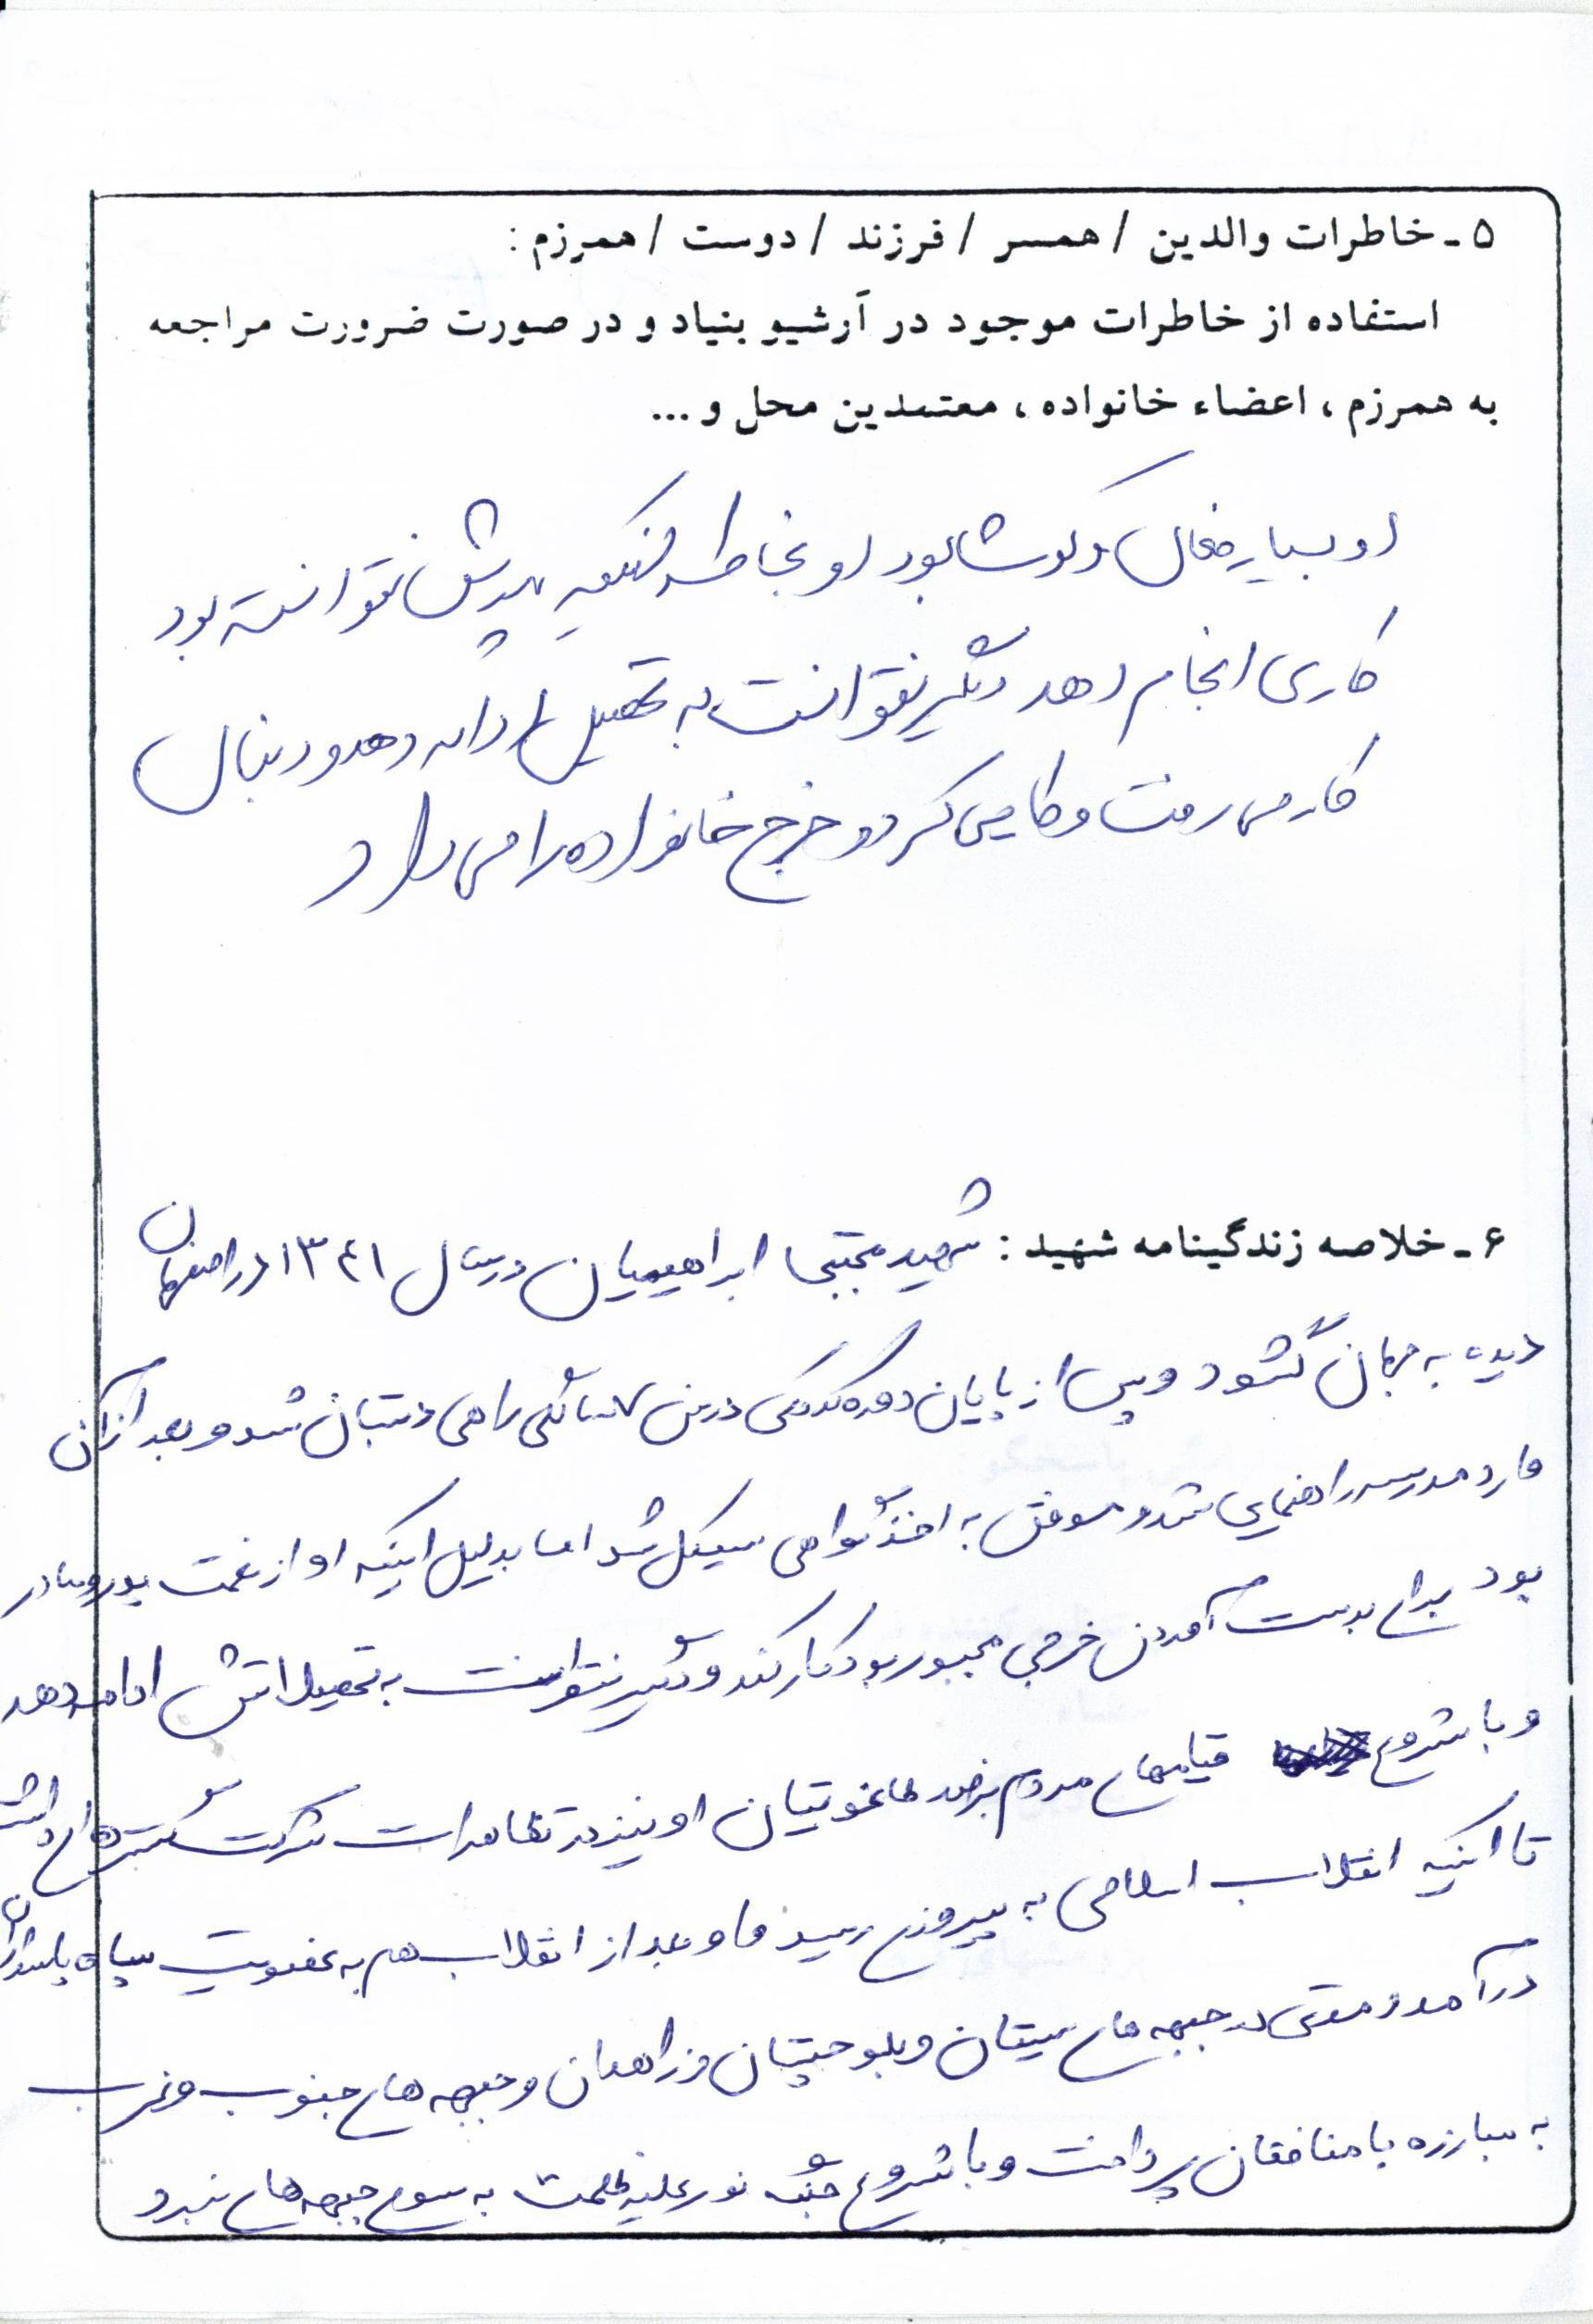 ۵ـ خاطرات والدین / همسر / فرزند / دوست / همرزم :
استفاده از خاطرات موجود در آرشیو بنیاد و در صورت ضرورت مراجعه
به همرزم ، اعضاء خانواده ، معتمدین محل و ...
او بسیار فعال و کوشا بود او بخاطر اینکه پدرش نتوانسته بود
کاری انجام دهد دیگر نتوانست به تحصیل ادامه دهد و دنبال
کار می رفت و کار می کرد و خرج خانواده را می داد
۶ـ خلاصه زندگینامه شهید : شهید مجتبی ابراهیمیان در سال ۱۳۴۱ در اصفهان
دیده به جهان گشود و پس از پایان دوره کودکی در سن ۷ سالگی راهی دبستان شد و بعد از آن
وارد مدرسه راهنمایی شد و موفق به اخذ گواهی سیکل شد اما بدلیل اینکه او از نعمت پدر و مادر
بود برای بدست آوردن خرجی مجبور بود کار کند و دیگر نتوانست به تحصیلاتش ادامه دهد
و با شروع قیامهای مردم برضد طاغوتیان او نیز در تظاهرات شرکت گسترده ای داشت
تا اینکه انقلاب اسلامی به پیروزی رسید و او بعد از انقلاب هم به عضویت سپاه پاسداران
درآمد و مدتی در جبهه های سیستان و بلوچستان و زاهدان و جبهه های جنوب و غرب
به مبارزه با منافقان پرداخت و با شروع جنگ نور علیه ظلمت به سوی جبهه های نبرد